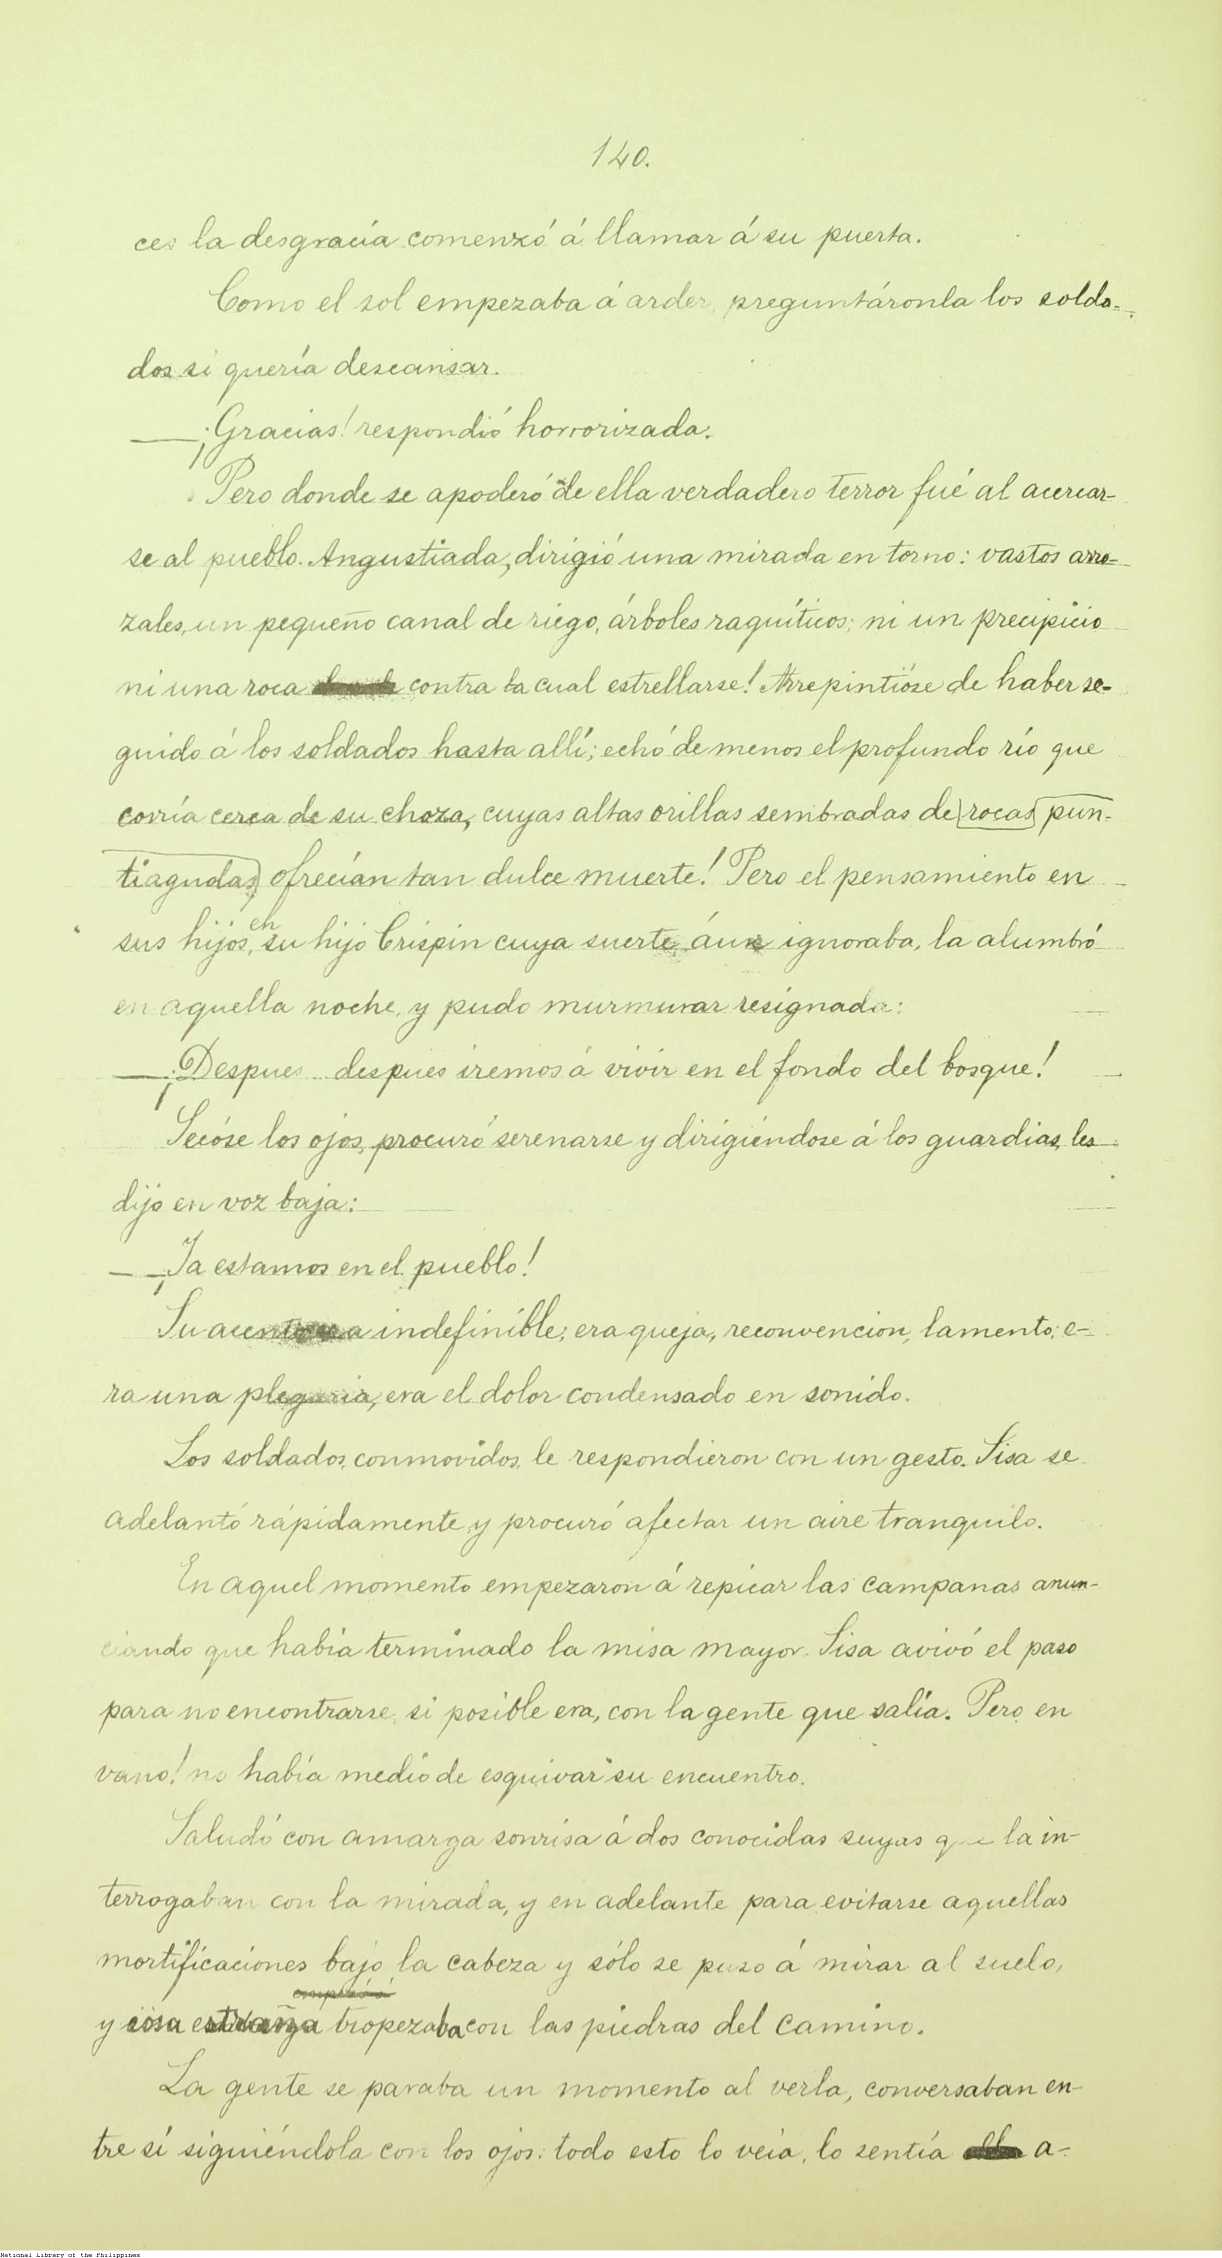 140.
ces la desgracia comenzó á llamar á su puerta.
Como el sol empezaba á arder, preguntáronla los solda-
dos si quería descansar.
—¡Gracias! respondió horrorizada.
Pero donde se apoderó de ella verdadero terror fué al acercar-
se al pueblo. Angustiada, dirigió una mirada en torno: vastos arro-
zales, un pequeño canal de riego, árboles raquíticos; ni un precipicio
ni una roca contra la cual estrellarse! Arrepintióse de haber se-
guido á los soldados hasta allí; echó de menos el profundo río que
corría cerca de su choza, cuyas altas orillas sembradas de rocas pun-
tiagudas, ofrecían tan dulce muerte! Pero el pensamiento en
sus hijos, en su hijo Crispin cuya suerte áun ignoraba, la alumbró
en aquella noche, y pudo murmurar resignada:
—¡Despues... despues iremos á vivir en el fondo del bosque!
Secóse los ojos, procuró serenarse y dirigiéndose á los guardias, les
dijo en voz baja:
—¡Ya estamos en el pueblo!
Su acento era indefinible; era queja, reconvencion, lamento; e-
ra una plegaria, era el dolor condensado en sonido.
Los soldados, conmovidos, le respondieron con un gesto. Sisa se
adelantó rápidamente y procuró afectar un aire tranquilo.
En aquel momento empezaron á repicar las campanas anun-
ciando que había terminado la misa mayor. Sisa avivó el paso
para no encontrarse, si posible era, con la gente que salía. Pero en
vano! no había medio de esquivar su encuentro.
Saludó con amarga sonrisa á dos conocidas suyas que la in-
terrogaban con la mirada, y en adelante para evitarse aquellas
mortificaciones bajó la cabeza y sólo se puso á mirar al suelo,
y cosa estraña tropezaba con las piedras del camino.
La gente se paraba un momento al verla, conversaban en-
tre sí siguiéndola con los ojos: todo esto lo veía, lo sentía a-
National Library of the Philippines